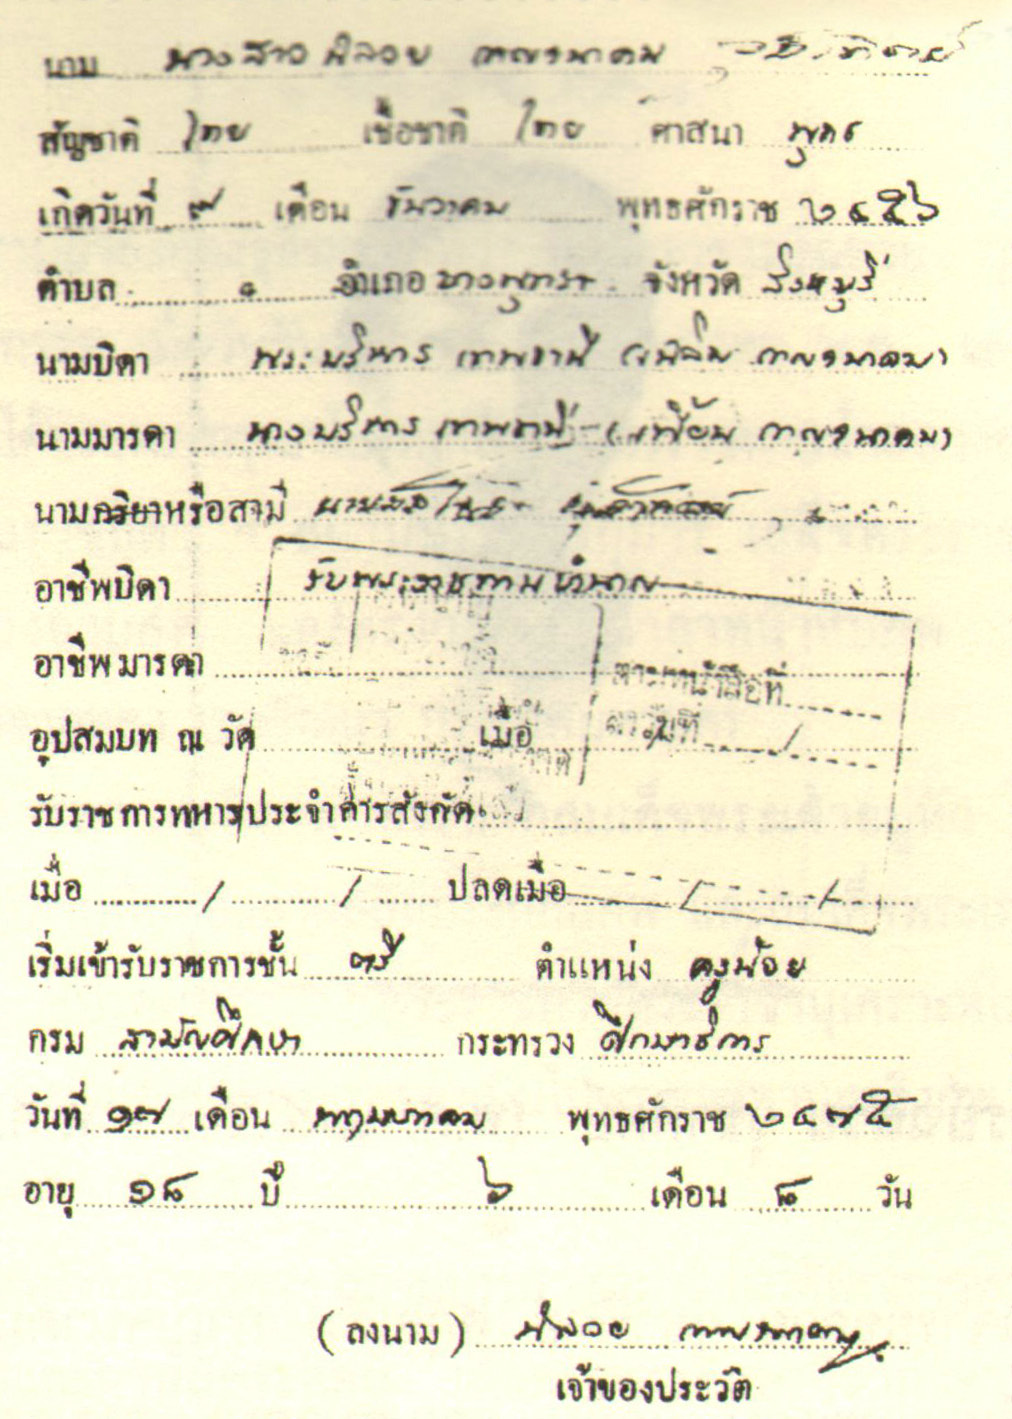 นาม นางสาว พิลอย กาญจนาคม
สัญชาติ ไทย เชื้อชาติ ไทย ศาสนา พุทธ
เกิดวันที่ ๙ เดือน ธันวาคม พุทธศักราช ๒๔๕๖
ตำบล อำเภอ บางพุทรา จังหวัด สิงห์บุรี
นามบิดา พระบริหาร เทพธานี กาญจนาคม)
นามมารดา นางบริหาร เทพธานี กาญจนาคม)
นามภริยาหรือสามี
อาชีพบิดา รับพระราชทานบำนาญ
อาชีพมารดา
ลาวันที่
อุปสมบท ณ วัด เมื่อ
รับราชการทหารประจำการสังกัด
เมื่อ / / ปลดเมื่อ / /
เริ่มเข้ารับราชการชั้น ตรี ตำแหน่ง ครูน้อย
กรม สามัญศึกษา กระทรวง ศึกษาธิการ
วันที่ ๑๗ เดือน พฤษภาคม พุทธศักราช ๒๔๗๕
อายุ ๑๘ ปี ๖ เดือน ๘ วัน
(ลงนาม) พิลอย กาญจนาคม
เจ้าของประวัติ